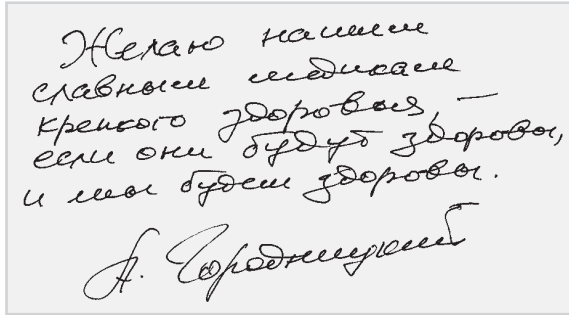 Желаю нашим
славным медикам
крепкого здоровья, –
если они будут здоровы,
и мы будем здоровы.
А. Городницкий